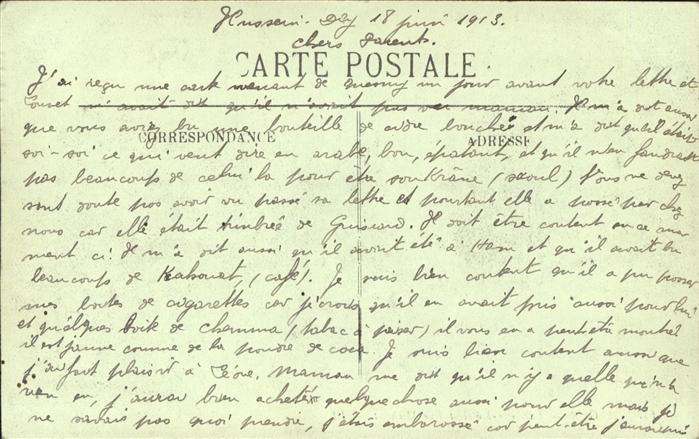 Hussein-Dey 18 juin 1913.
Chers Parents.
CARTE POSTALE
J'ai reçu une carte venant de un jour avant votre lettre et
m'avait dit qu'il n'avait pas vu maman. Il m'a dit aussi
que vous aviez bu une bouteille de cidre bouché et m'a dit qu'il était
CORRESPONDANCE
ADRESSE
soi-soi ce qui veut dire en arabe, bon, épatant, et qu'il n'en faudrait
pas beaucoup de celui la pour être soukrâne (saoul) Vous ne devez
sans doute pas avoir vu passé sa lettre et pourtant elle a passé par chez
nous car elle était timbrée de Guiscard. Il doit être content en ce mo
ment ci. Il m'a dit aussi qu'il avait été à Ham et qu'il avait bu
beaucoup de Kahouat, (café). Je suis bien content qu'il a pu passer
mes boites de cigarettes car je crois qu'il en avait pris aussi pour lui
et quelques boite de chemma (tabac à priser) il vous en a peut etre montré
il est jaune comme de la poudre de coco. Je suis bien content aussi que
j'ai fait plaisir à Maman me dit qu'il n'y a qu'elle qu'a
rien eu, j'aurai bien acheté quelque chose aussi pour elle mais je
ne savais pas quoi prendre, j'étais embarassé car peut-être j'aurais